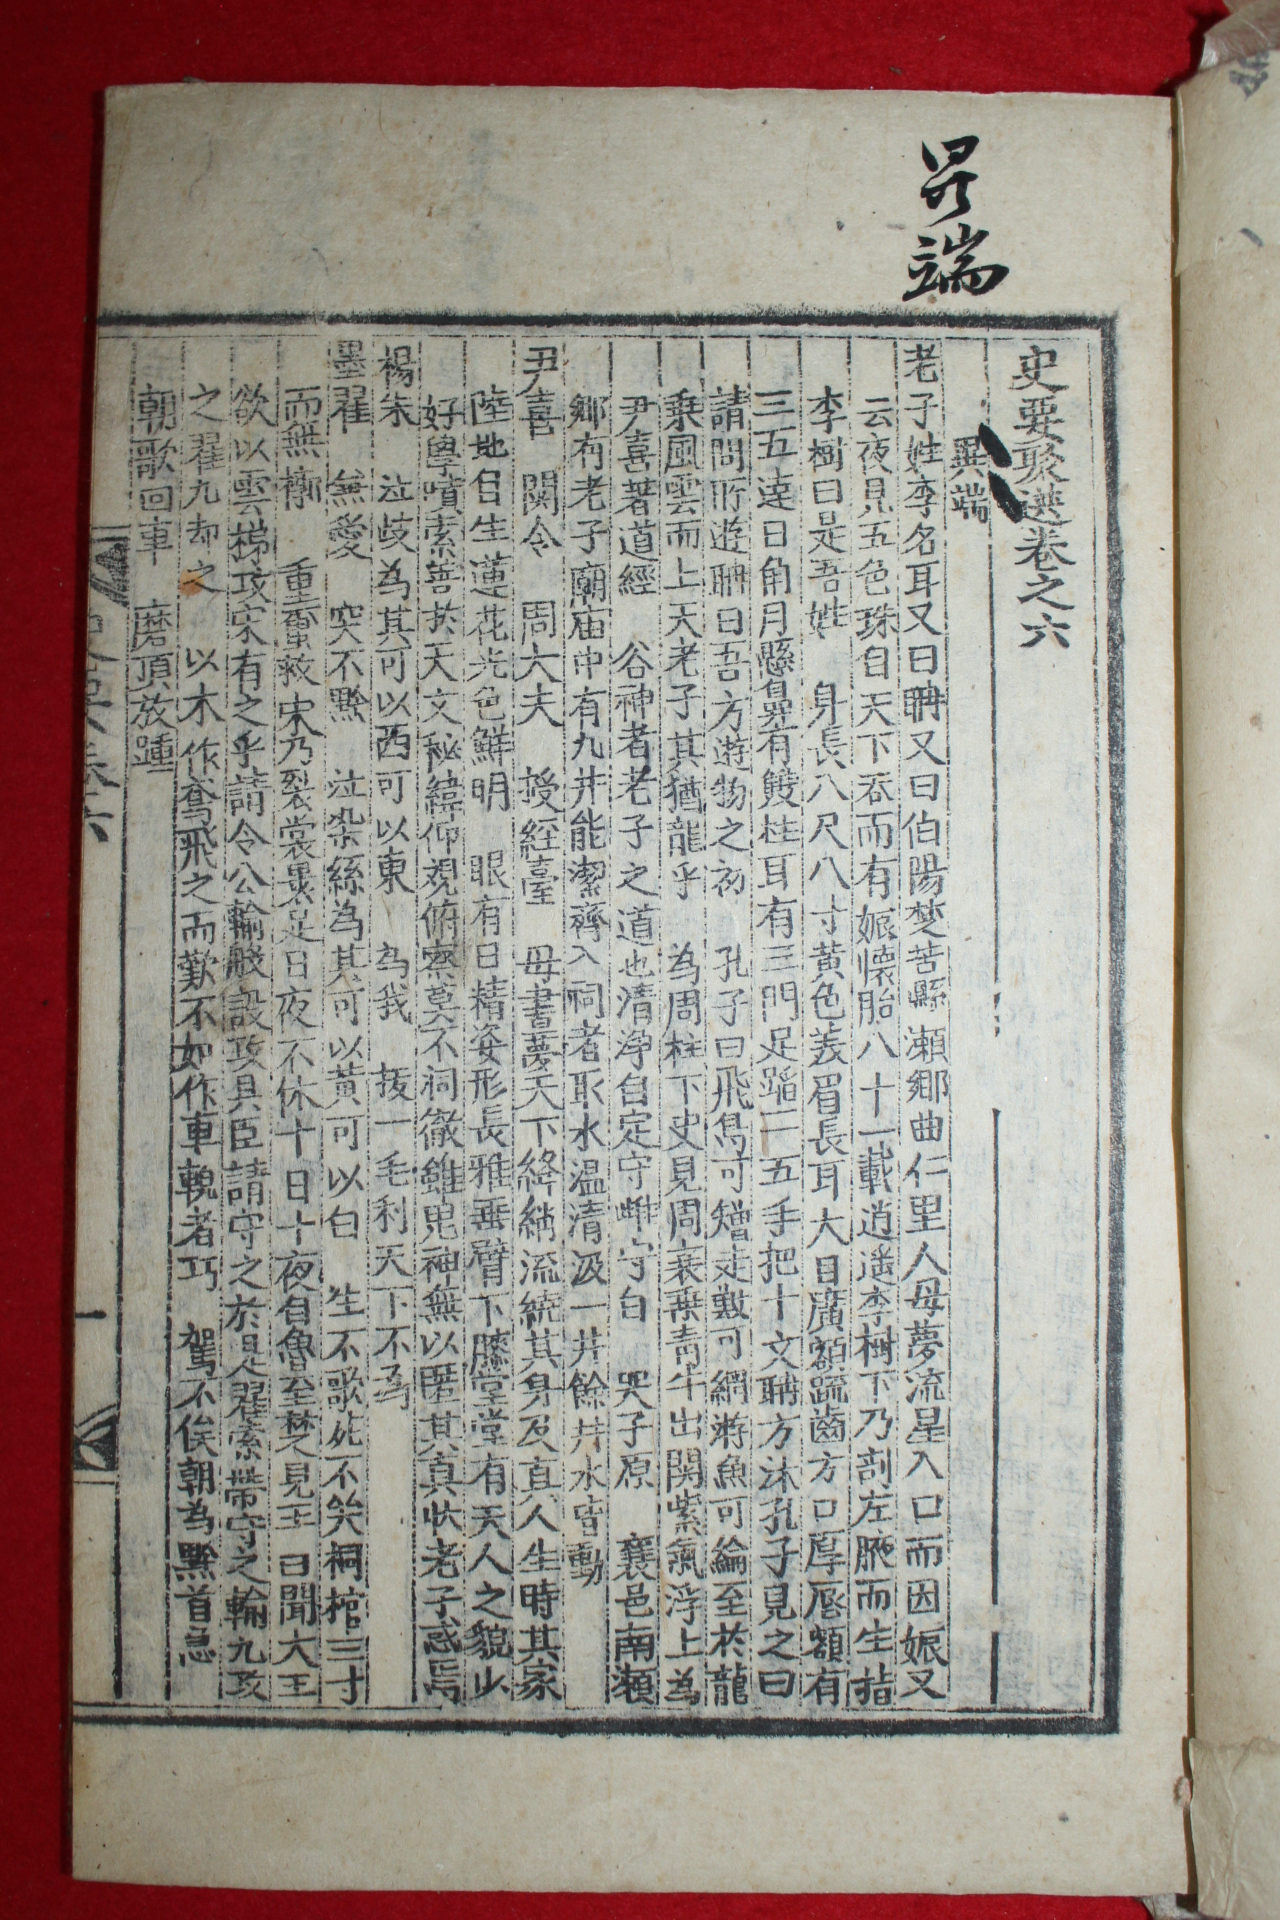 異端
史要聚選卷之六
異端
老子姓李名耳又曰聃又曰伯陽楚苦縣瀬郷曲仁里人母夢流星入口而因娠又
云夜見五色珠自天下吞而有娠懷胎八十一載逍遥李樹下乃剖左腋而生指
李樹曰是吾姓 身長八尺八寸黃色羙眉長耳大目廣額疏齒方口厚唇額有
三五達日角月懸鼻有雙柱耳有三門足蹈二五手把十文聃方沐孔子見之曰
請問所遊聃曰吾方遊物之初 孔子曰飛鳥可矰走獸可網游魚可綸至於龍
乗風雲而上天老子其猶龍乎 為周柱下史見周衰乗青牛出関紫氣浮上為
尹喜著道經 谷神者老子之道也清浄自定守雌守白 哭子原 襄邑南瀬
郷有老子廟庙中有九井能潔齊入祠者取水温清汲一井餘井水皆動
尹喜 関令 周大夫 授經臺 母晝夢天下絳綃流繞其身及真人生時其家
陸地自生蓮花光色鮮明 眼有日精姿形長雅垂臂下膝堂堂有天人之貌少
好學墳素善於天文秘緯仰覌俯察莫不祠徹雖鬼神無以匿其真状老子惑焉
楊朱 泣歧為其可以西可以東 為我 拔一毛利天下不為
墨翟 無愛 突不黔 泣染絲為其可以黃可以白 生不歌死不笑桐棺三寸
而無槨 重繭救宋乃裂裳裹足日夜不休十日十夜自魯至楚見王曰聞大王
欲以雲梯攻宋有之乎請令公輸般設攻具臣請守之於是翟縈帶守之輸九攻
之翟九却之 以木作鳶飛之而歎不如作車輗者巧 駕不俟朝為黔首急
朝歌回車 磨頂放踵
史要卷六
一